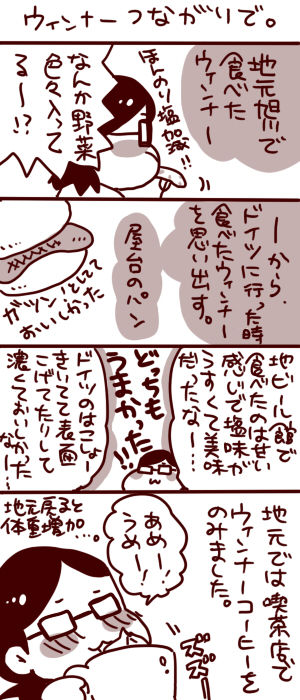 ウィンナーつながりで。
地元旭川で
食べた
ウィンナー
ほんのり塩加減!!
なんか野菜
色々入って
る〜!?
ーから、
ドイツに行った時
食べたウィンナー
を思い出す。
屋台のパン
ガツン!としてて
おいしかった
地ビール館で
食べたのはせい
感じで塩味が
うすくて美味
だったな〜…
どっちも
うまかった!!
ドイツのはこしょー
きいてて表面
こげてたりして
濃くておいしかった
なー…
地元では喫茶店で
ウィンナーコーヒーを
のみました。
あめー
うめー!
地元戻ると
体重増加…。
ズズズ